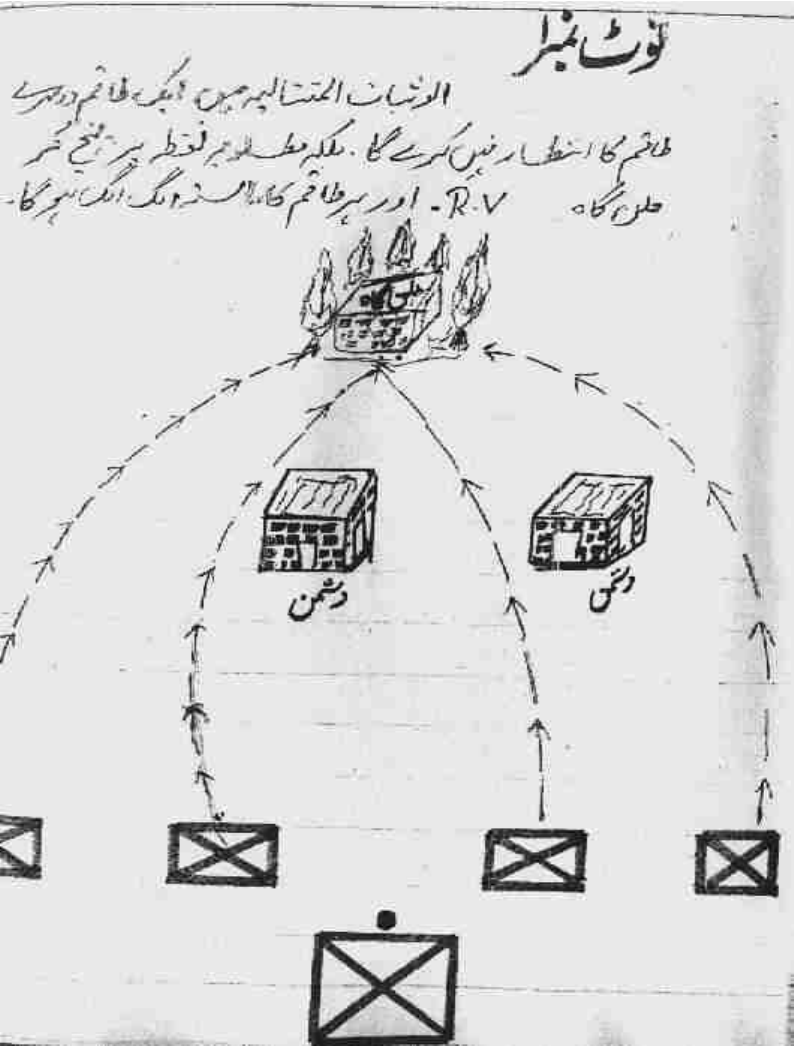 نوٹ نمبر 1
الوثبات المتتالیہ میں ایک طاقم دوسرے
طاقم کا انتظار نہیں کرے گا۔ بلکہ مطلوبہ نقطہ پر پہنچ کر
ملے گا۔ R.V۔ اور ہر طاقم کا راستہ الگ الگ ہوگا۔
دشمن
دشمن